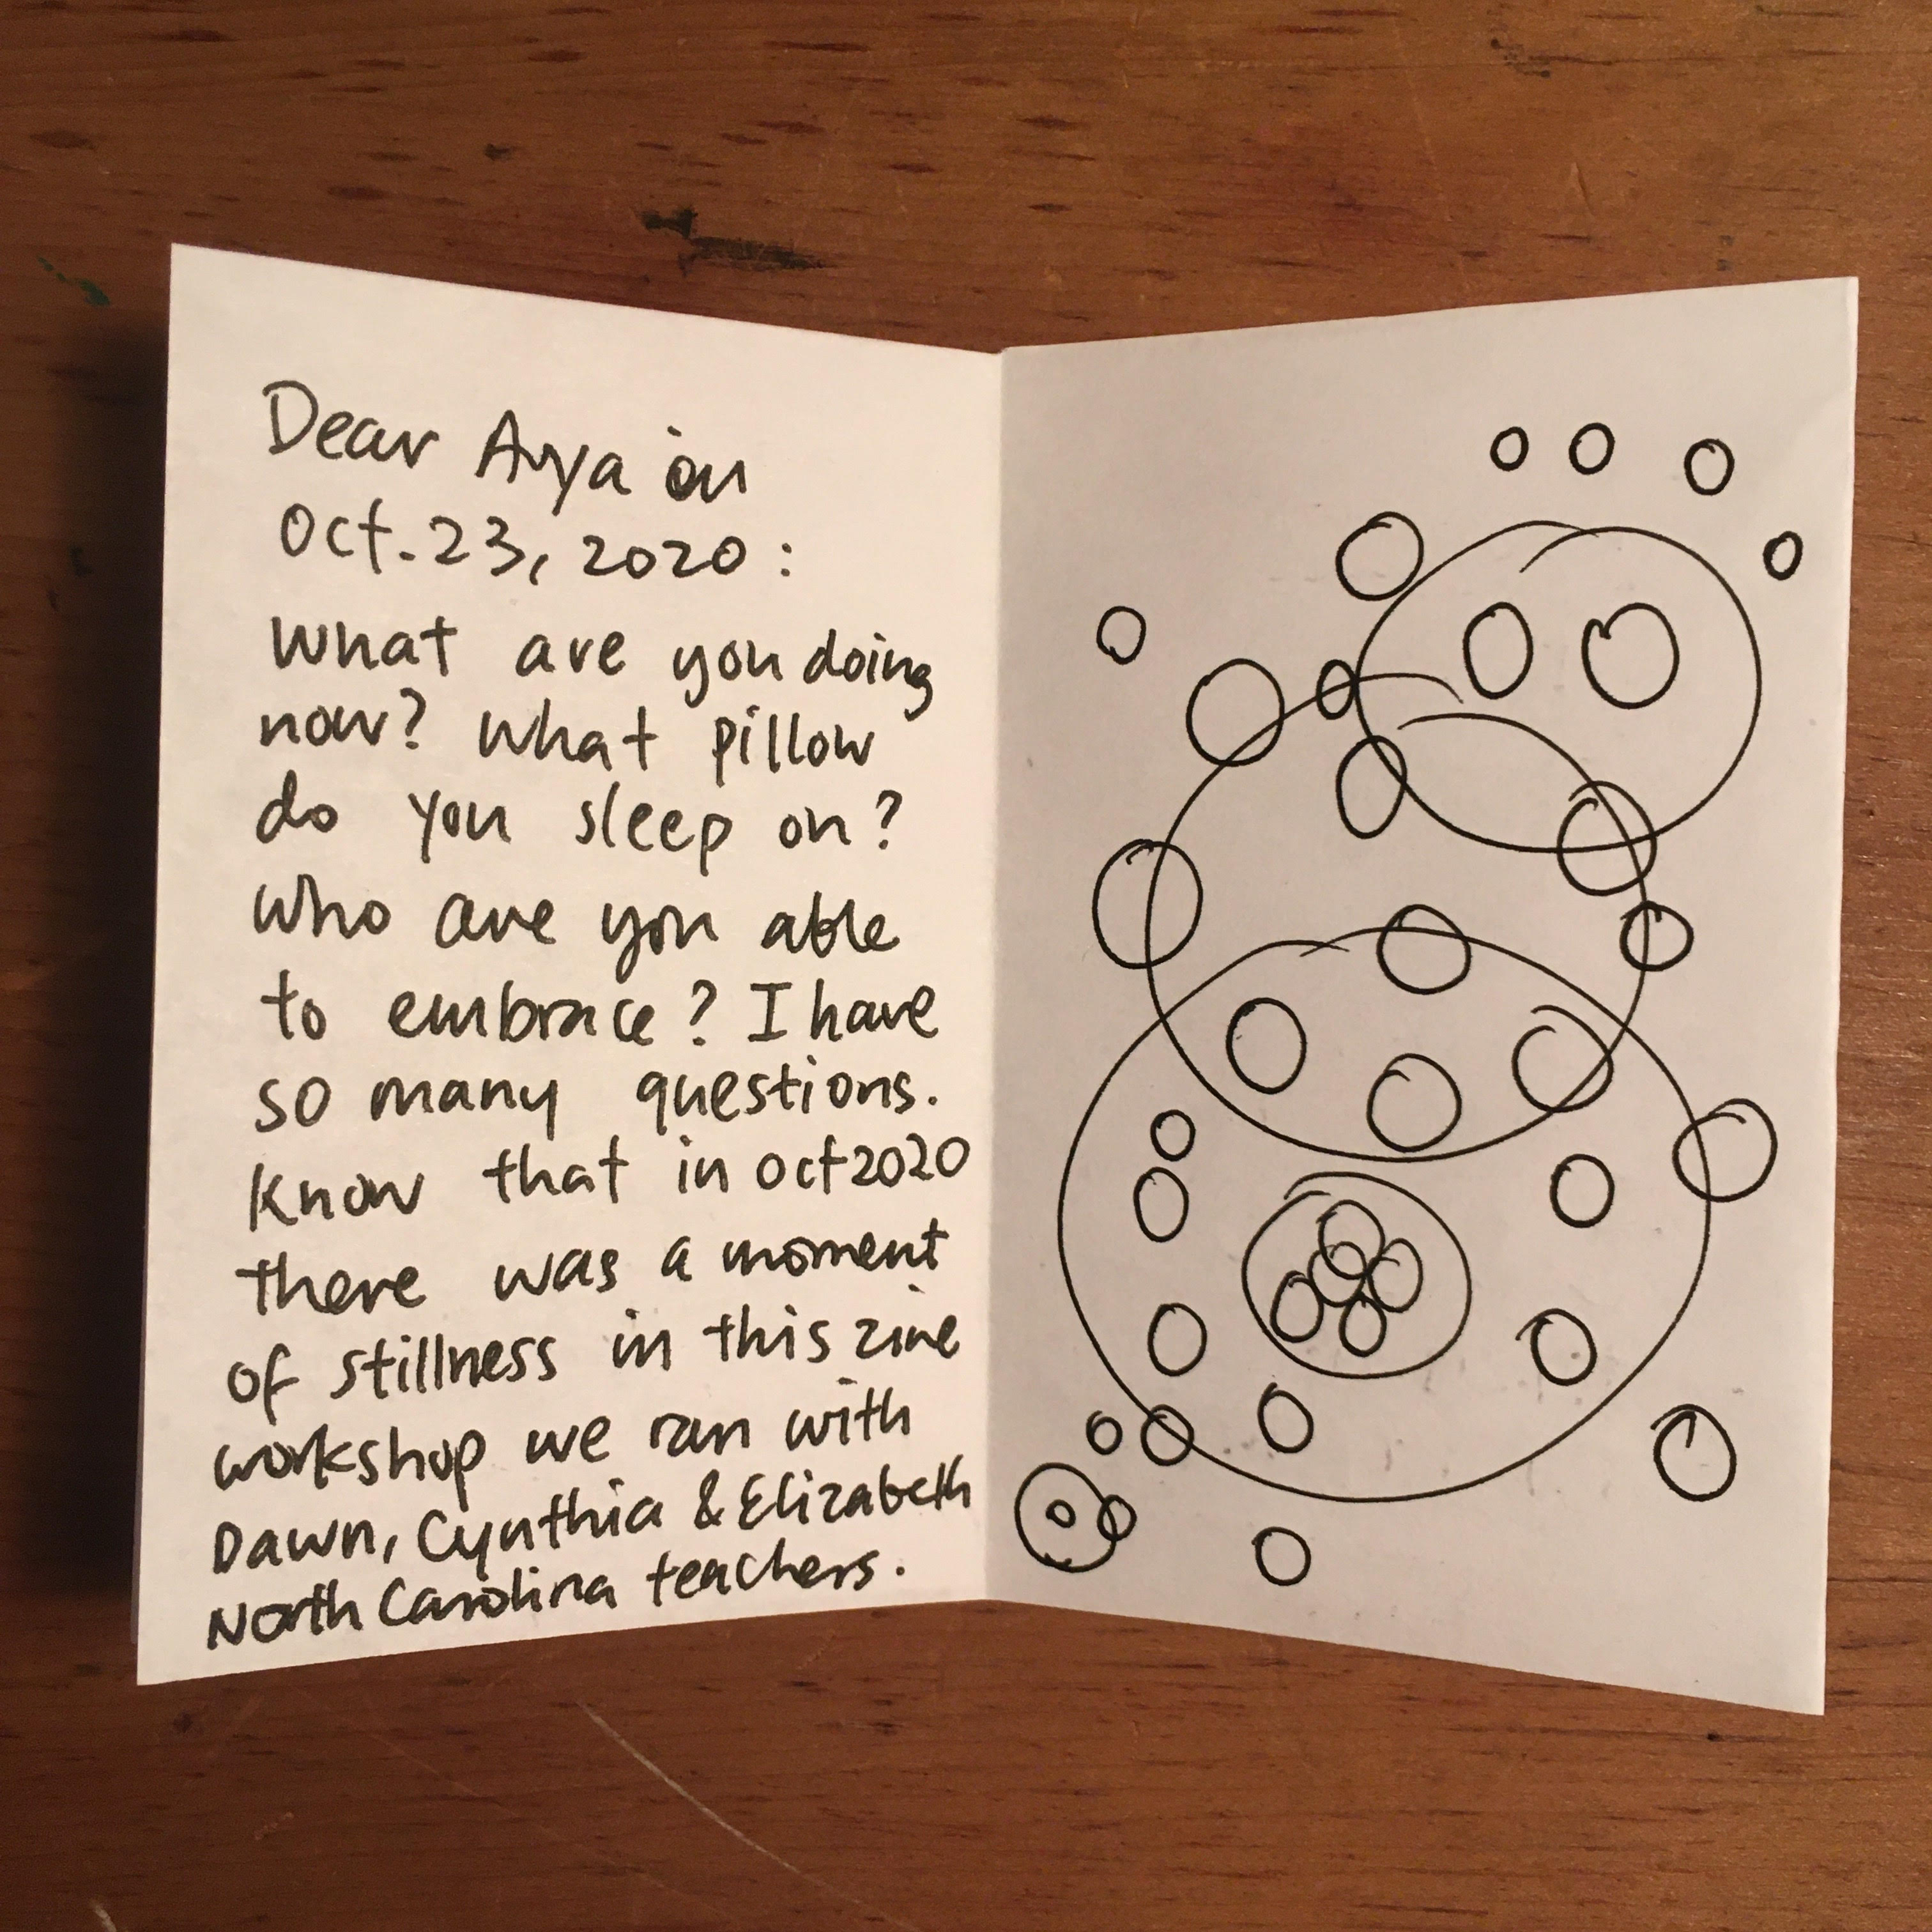 Dear Aya on
Oct. 23, 2020:
What are you doing
now? What pillow
do you sleep on?
Who are you able
to embrace? I have
so many questions.
Know that in Oct 2020
there was a moment
of stillness in this zine
workshop we ran with
Dawn, Cynthia & Elizabeth
North Carolina teachers.